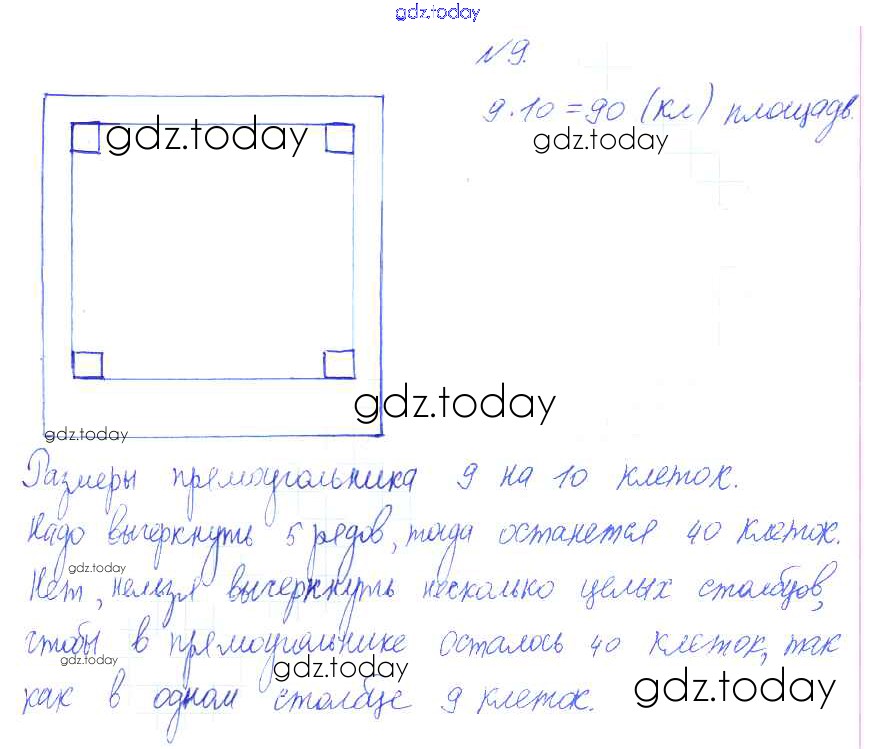 gdz.today
№ 9.
9·10=90 (кл) площадь.
gdz.today
gdz.today
gdz.today
gdz.today
Размеры прямоугольника 9 на 10 клеток.
Надо вычеркнуть 5 рядов, тогда останется 40 клеток.
gdz.today
Нет, нельзя вычеркнуть несколько целых столбцов,
чтобы в прямоугольнике осталось 40 клеток, так
gdz.today
gdz.today
gdz.today
как в одном столбце 9 клеток.